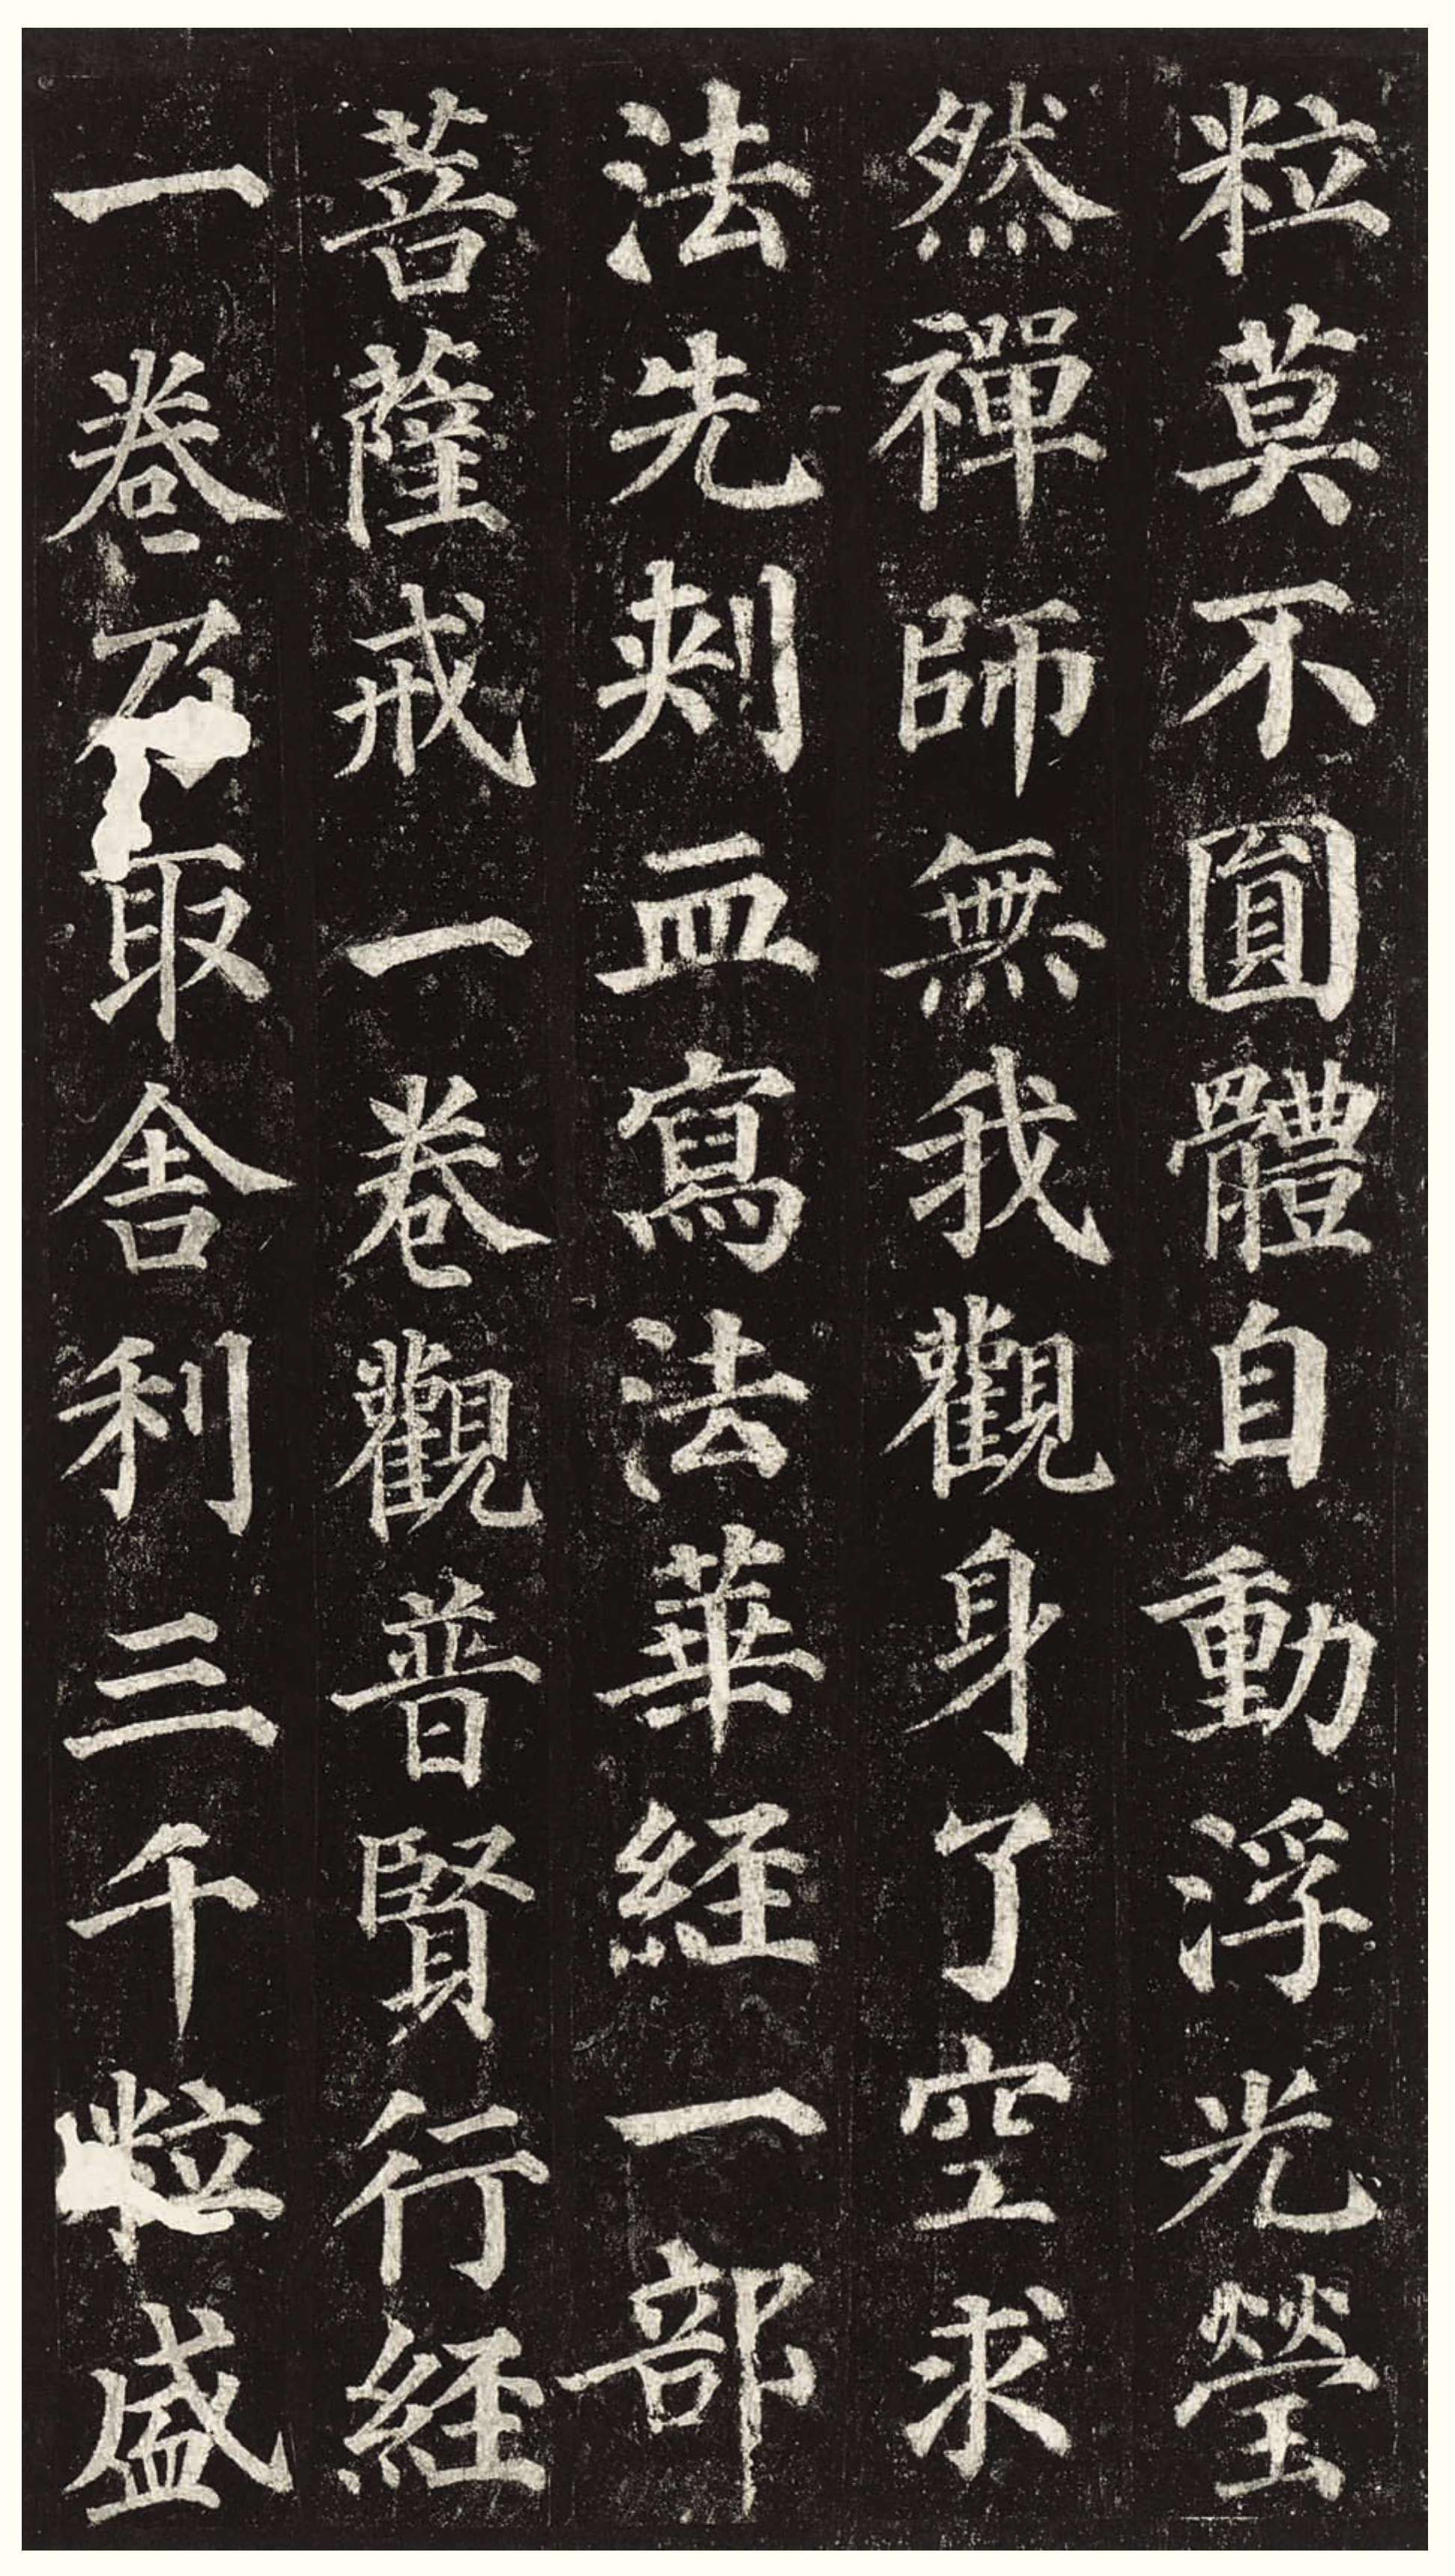 粒莫不圓體自動浮光瑩
然禪師無我觀身了空求
法先刾血寫法華経一部
菩薩戒一卷觀普賢行経
一卷乃取舍利三千粒盛